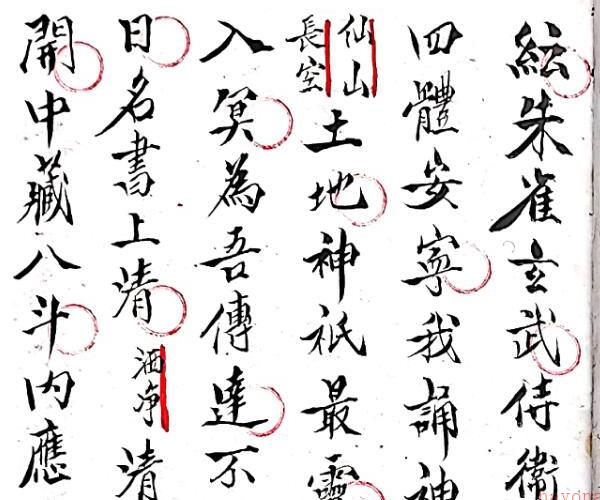 紜朱雀玄武侍衛
四體安寧我誦神
仙山
長空
土地神祇最靈
入冥為吾傳達不
日名書上清
洒净
清
開中藏八斗内應